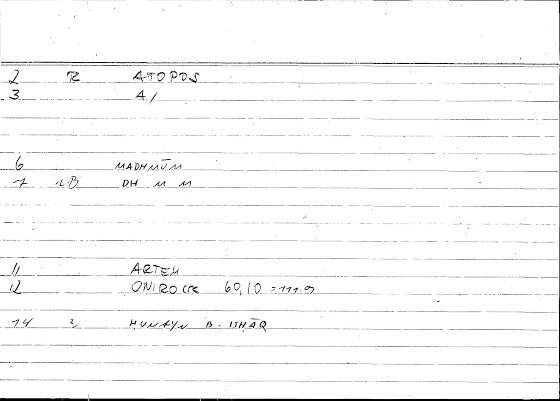 2 R ATOPOS
3 A/
6 MADHMŪM
7 LB DH M M
11 ARTEM
12 ONIROCR 60,10 = 111.9
14 2 HUNAYN B. ISHĀQ